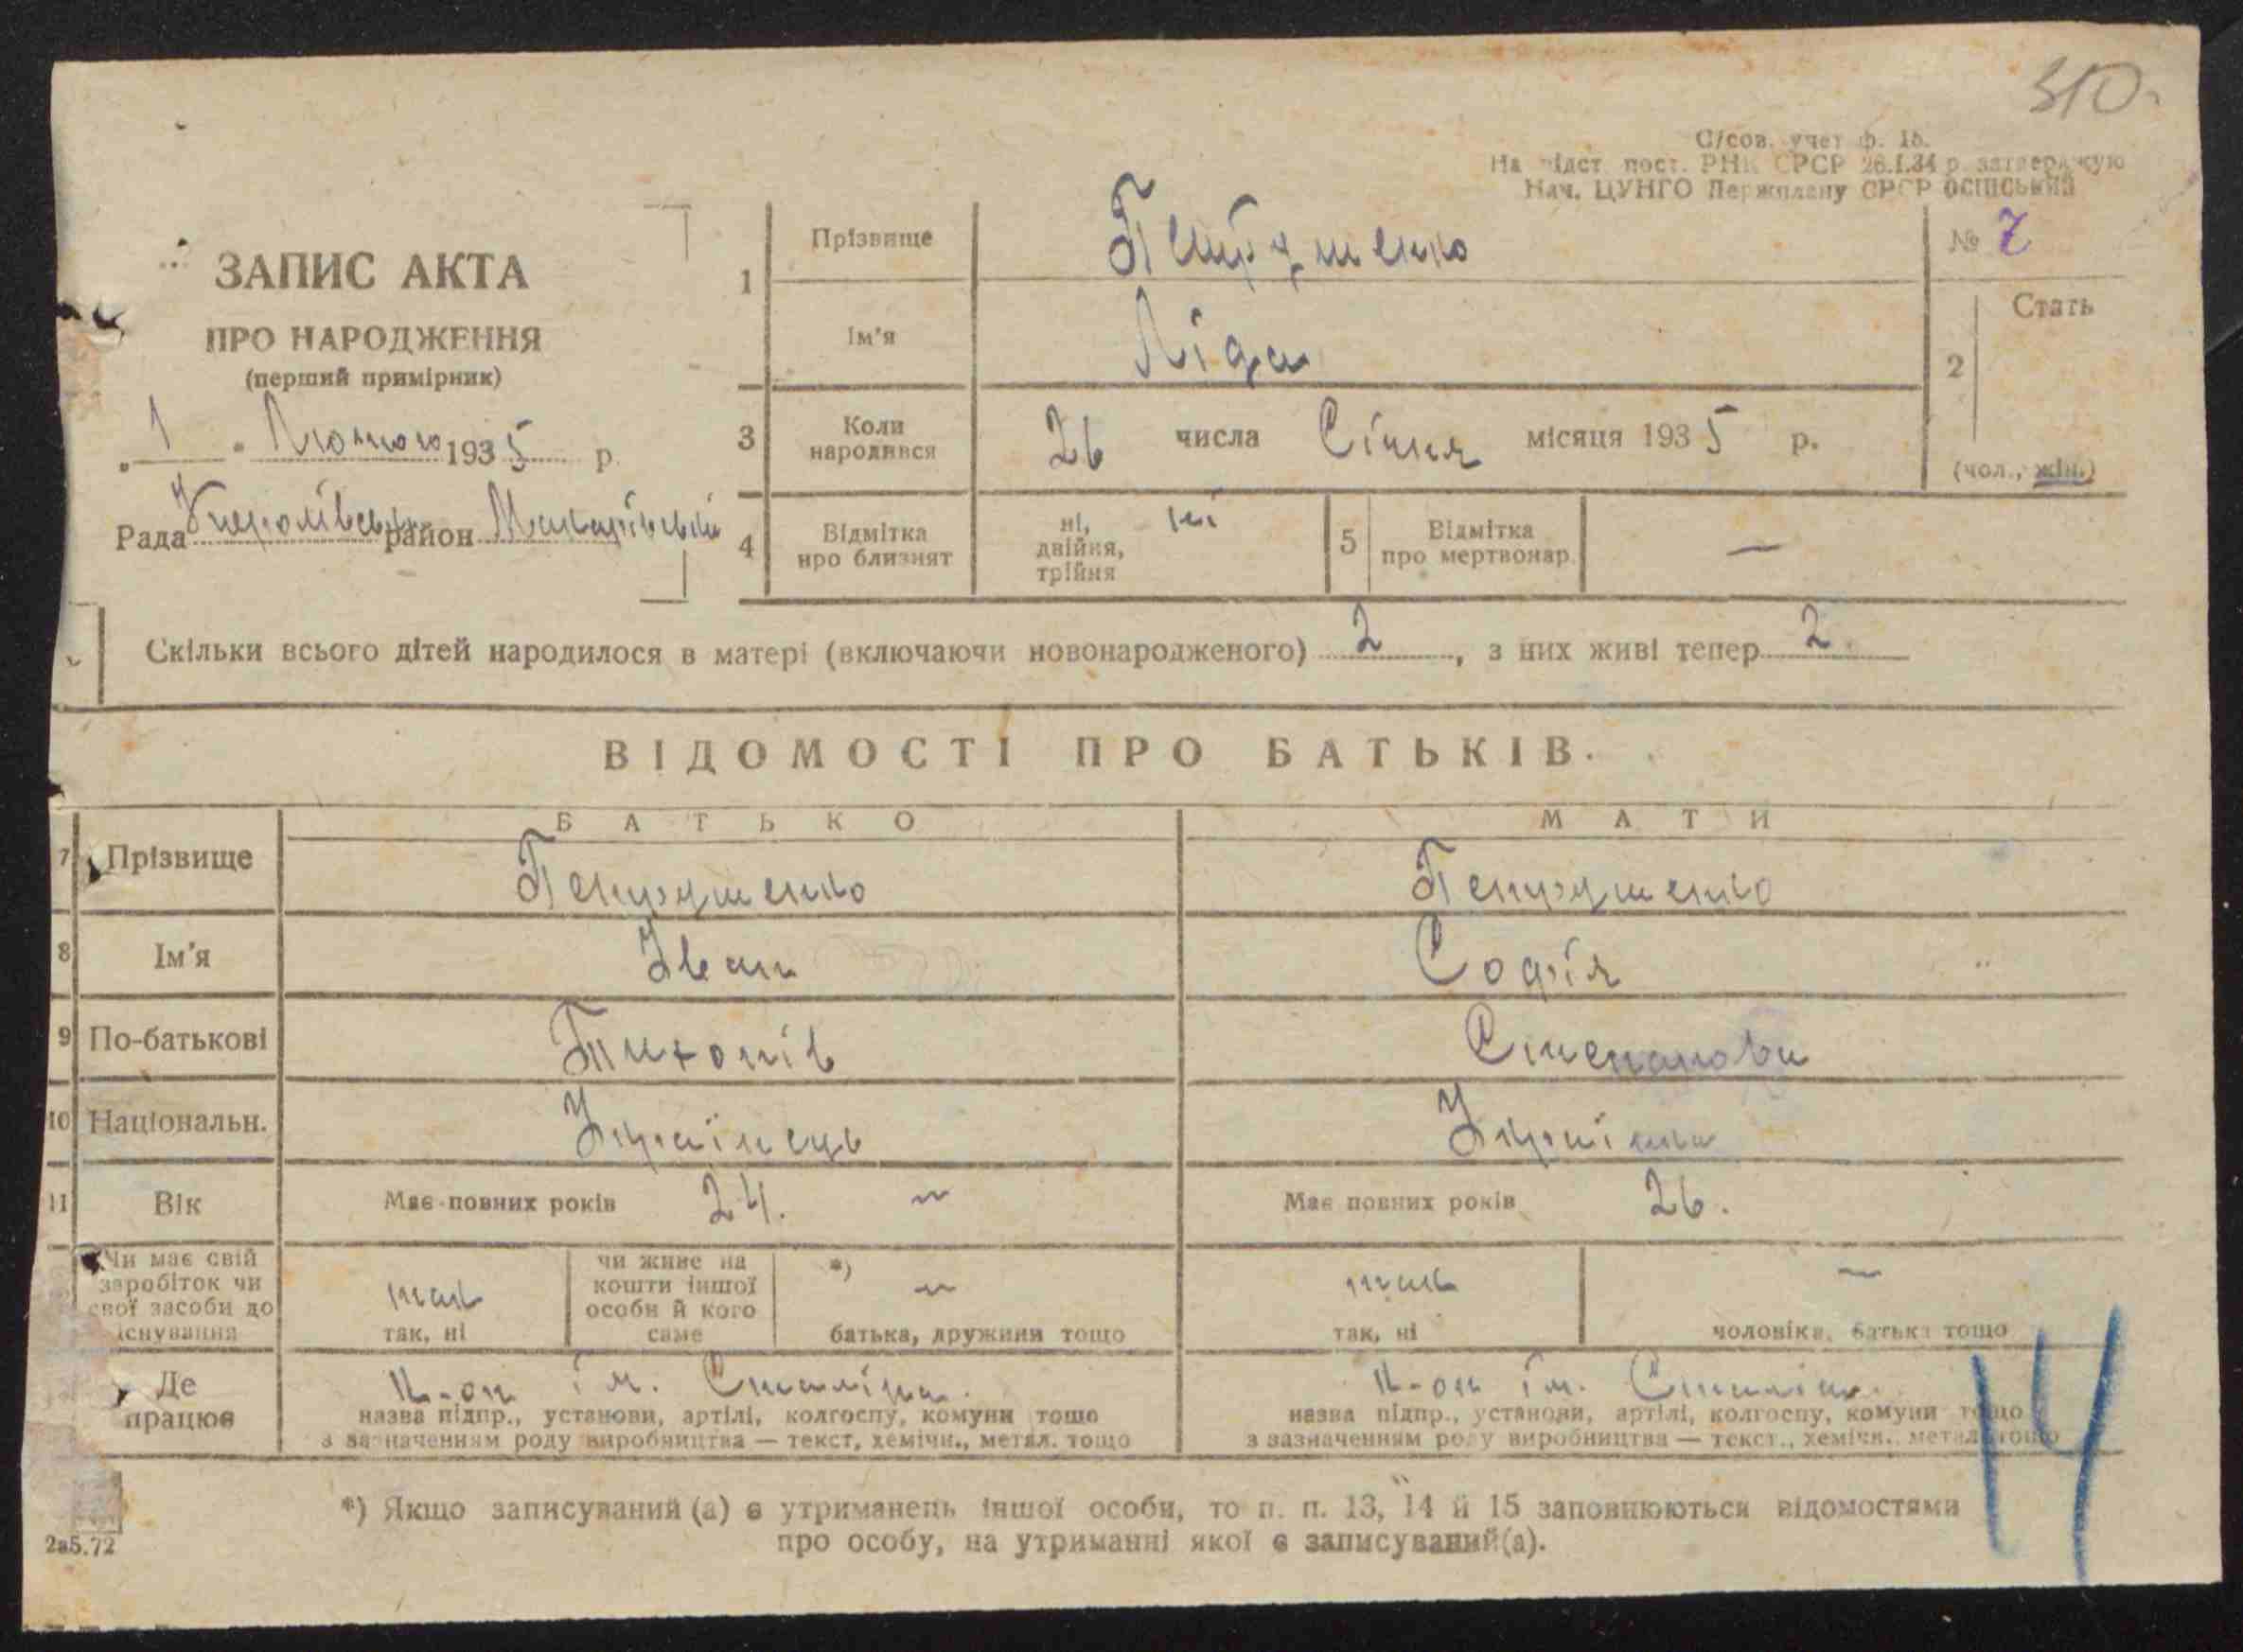 310.
С/сов. учет ф. 15.
На підст. пост. РНК СРСР 26.I.34 р. затверджую
Нач. ЦУНГО Держплану СРСР ОСІНСЬКИЙ
№ 7
ЗАПИС АКТА
ПРО НАРОДЖЕННЯ
(перший примірник)
„1“ Лютого 1935 р.
Рада район Макарівський
1 Прізвище
Ім'я Ліда
2 Стать
(чол., жін.)
3 Коли народився 26 числа Січня місяця 1935 р.
4 Відмітка про близнят ні, двійня, трійня ні
5 Відмітка про мертвонар. —
Скільки всього дітей народилося в матері (включаючи новонародженого) 2, з них живі тепер 2
ВІДОМОСТІ ПРО БАТЬКІВ.
БАТЬКО МАТИ
7 Прізвище
8 Ім'я Іван Софія
9 По-батькові Тихонів Степанова
10 Національн. Українець Українка
11 Вік Має повних років 24. — Має повних років 26.
Чи має свій заробіток чи свої засоби до існування так так, ні чи живе на кошти іншої особи й кого саме *) — батька, дружини тощо так так, ні — чоловіка, батька тощо
Де працює к-оп ім. Сталіна. к-оп ім. Сталіна.
назва підпр., установи, артілі, колгоспу, комуни тощо назва підпр., установи, артілі, колгоспу, комуни тощо
з зазначенням роду виробництва — текст, хемічн., метал. тощо з зазначенням роду виробництва — текст., хемічн., метал. тощо
14
*) Якщо записуваний (а) є утриманець іншої особи, то п. п. 13, 14 й 15 заповнюються відомостями
про особу, на утриманні якої є записуваний(а).
2а5.72